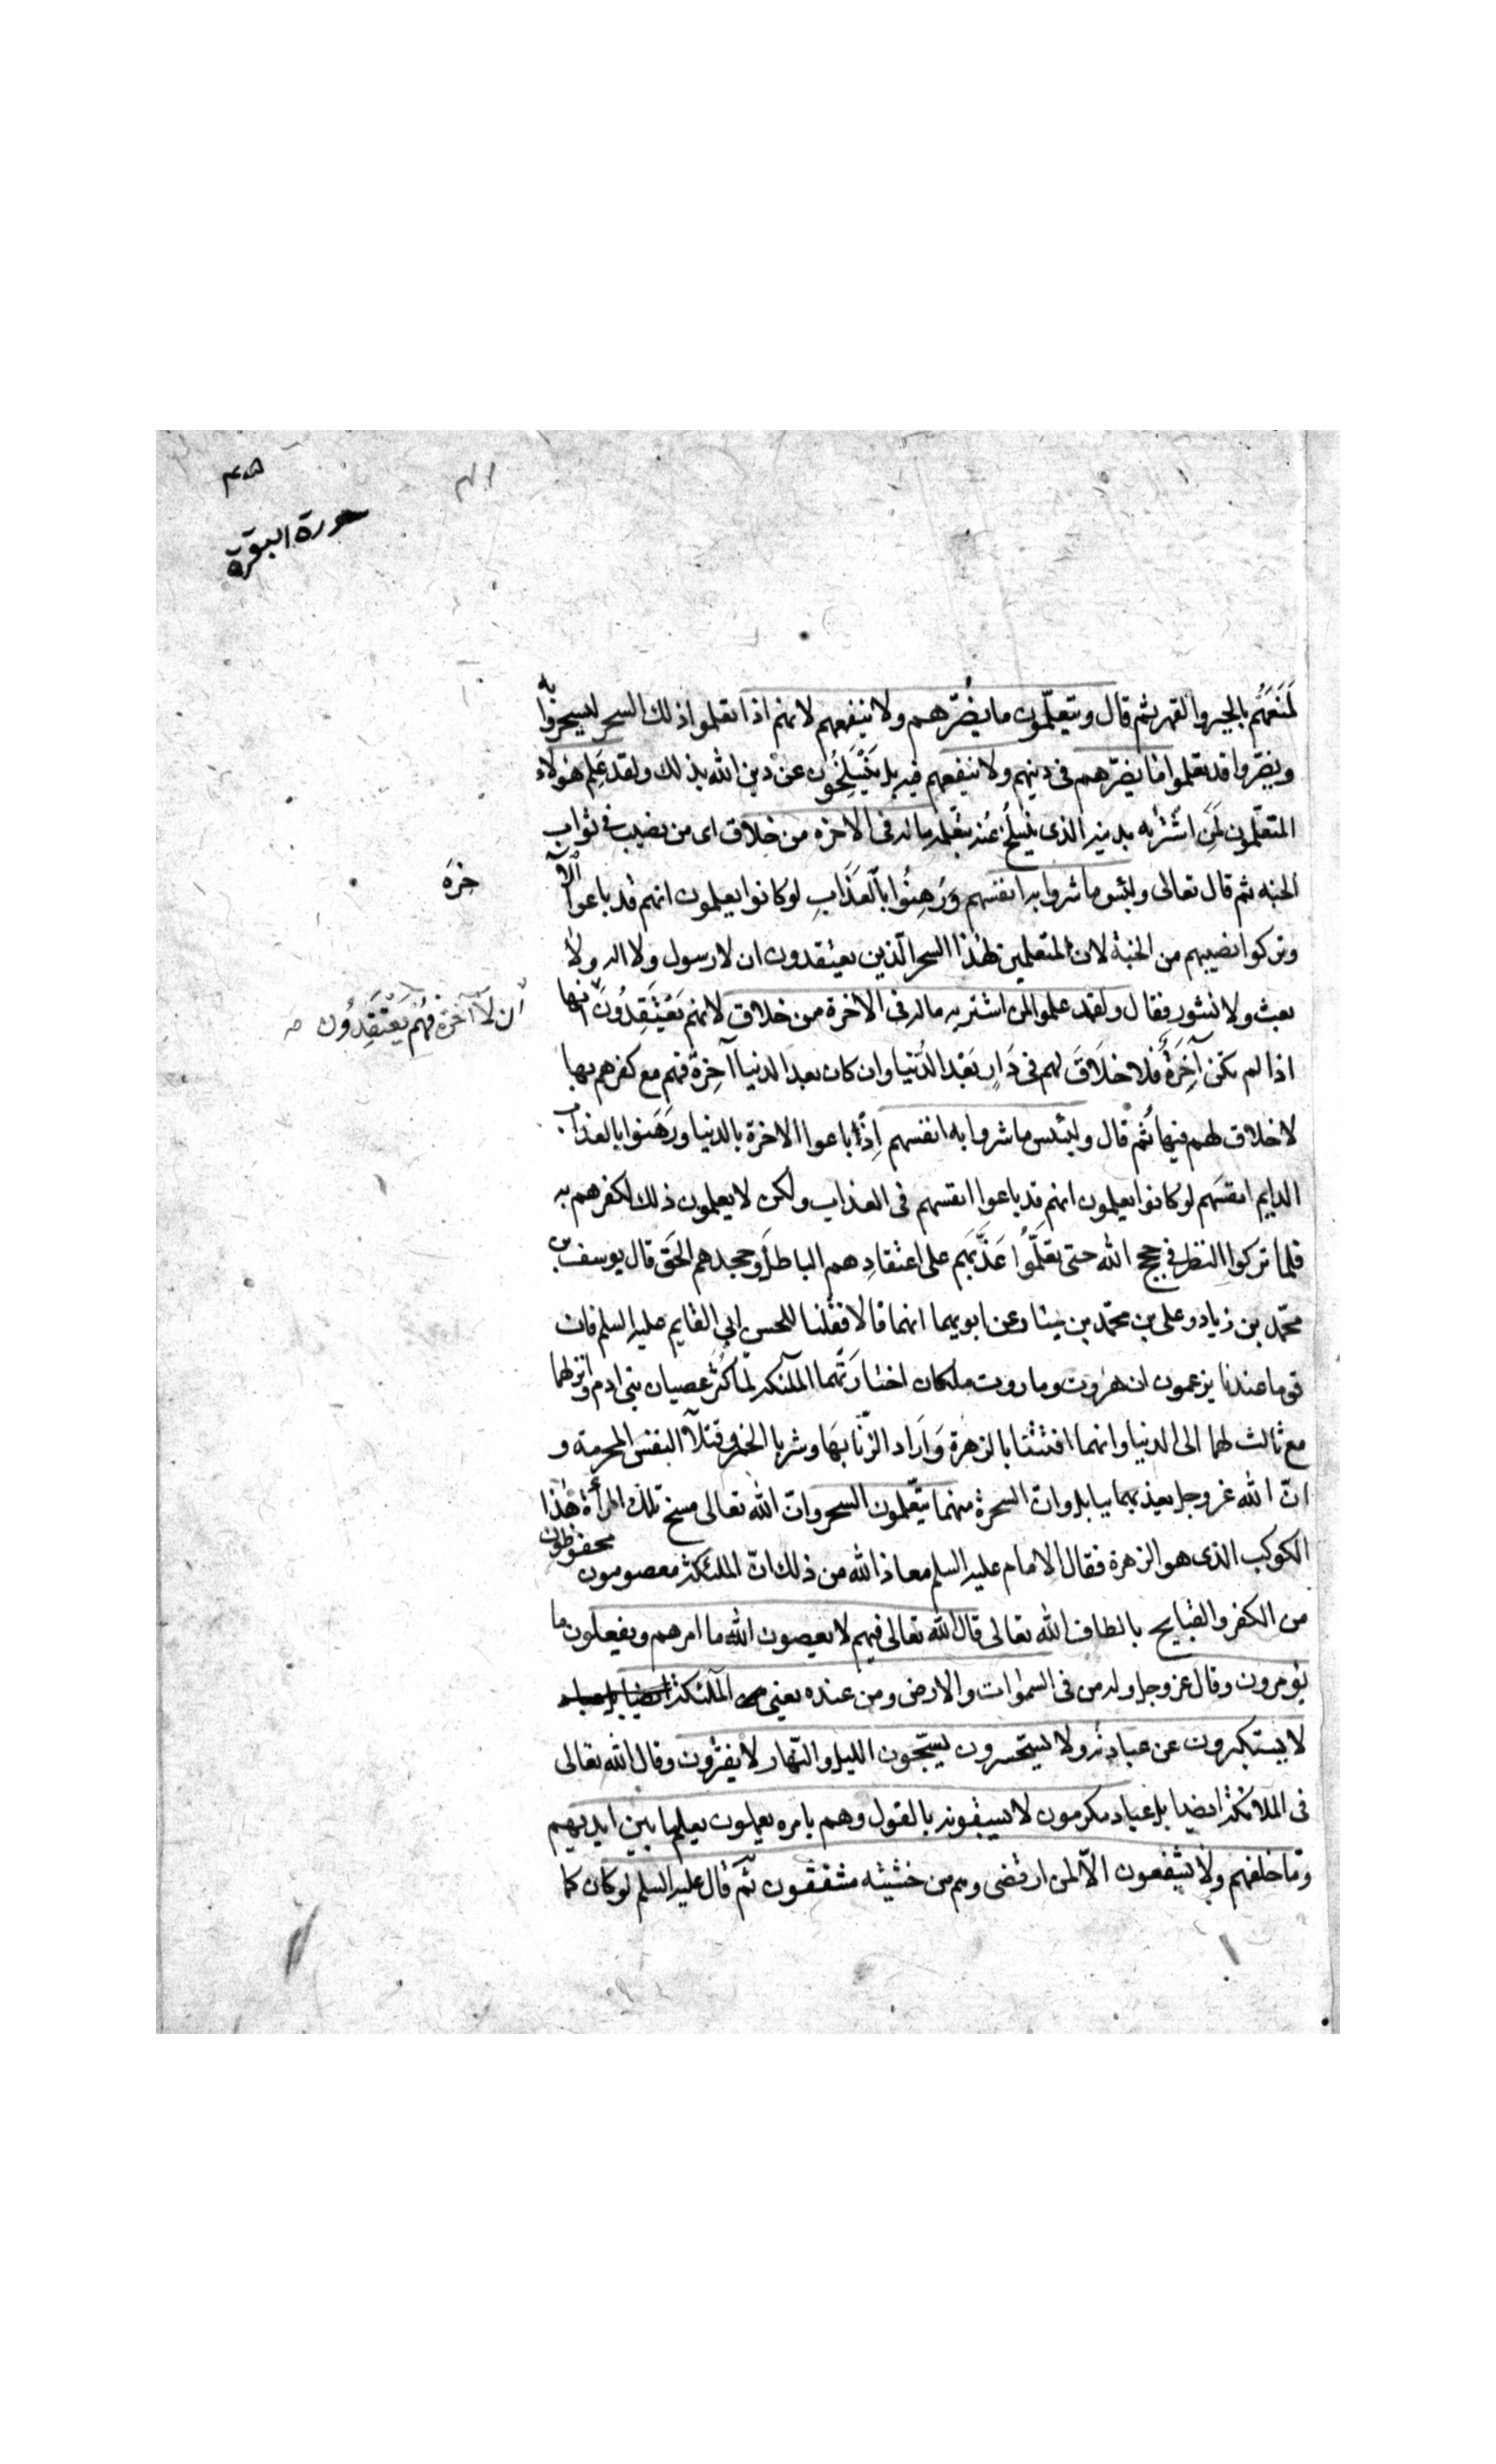 سورة البقرة
لمنعهم بالجبر والقهر ثم قال ويتعلّمون ما يضُرّهم ولا ينفعهم لانهم اذا تعلموا ذلك السحر ليسحروا به
ويضروا فقد تعلموا ما يضرّهم فى دينهم ولا ينفعهم فيه بل يَنْسَلِخُون عن دين الله بذلك ولقد عَلِم هؤلاء
المتعلّمون لمَنِ اشْتَريه بدينه الذى ينسلخ عنه بتعلمه ماله فى الاخرة من خلاق اى من نصيب فى ثواب
الجنه ثم قال تعالى ولبئس ما شروا به انفسهم وَرَهِنُوا بالعَذَابِ لو كانوا يعلمون انهم قد باعوا الآ
خِرَة
وتركوا نصيبهم من الجنة لان المتعلمين لهذا السحر الّذين يعتقدون ان لا رسول ولا اله ولا
بعث ولا نشور فقال ولقد علموا لمن اشتريه ماله فى الاخرة من خلاق لانهم يَعْتَقِدُونَ انها
أن لآ آخرة فهُم يَعْتَقِدُون
اذا لم تكن آخِرَةٌ فلا خلَاقَ لهم فى دَارٍ بَعْد الدُّنيا وان كان بعد الدنيا آخِرة فهم مع كفرهم بها
لا خلاق لهم فيها ثُم قال ولبئس ما شروا به انفسهم اِذْ باعوا الاخرة بالدنيا ورَهَنوا بالعذاب
الدايم انفسَهم لو كانوا يعلمون انهم قد باعوا انفسهم فى العذاب ولكن لا يعلمون ذلك لكفرهم به
فلما تركوا النظر فى حجج الله حتى يعلَمُوا عَذَّبَهم على اعتقادِهم الباطلَ وجحدهم الحَق قال يوسف بن
محمّد بن زياد وعلى بن محمّد بن سيار عن ابويهما انهما قالا فقلنا للحسن ابى القايم عليه السلم فان
قوما عندنا يزعمون ان هروت وماروت ملكان اختارَتهُما الملئكة لمّا كَثُر عصيان بنى ادم وانزلهما
مع ثالث لهما الى الدنيا وانهما افتتنا بالزهرة وَاَراد الزّنا بهَا وشربا الخمر وقتلا النفس المحرمة و
انّ الله عز وجل يعذبهما ببابل وانّ السحرة منهما يتعّلمون السحر وانّ الله تعالى مسخ تلك المرأة هذا
الكوكب الذى هو الزهرة فقال الامام عليه السلم معاذ الله من ذلك انّ الملئكة معصومون محفوظون
من الكفر والقبايح بالطاف الله تعالى قال الله تعالى فيهم لا يعصون الله ما امرهم ويفعلون ما
يؤمرون وقال عز وجل وله من فى السموات والارض ومن عنده يعنى الملئكة
لا يستكبرون عن عبادته ولا يستحسرون يسبّحون الليل والنّهار لا يفترون وقال الله تعالى
فى الملائكة ايضا بل عباد مكرمون لا يسبقونه بالقول وهم بامره يعملون يعلم ما بين ايديهم
وما خلفهم ولا يشفعون الاّ لمن ارتضى وهم من خشيته مشفقون ثمّ قال عليه السلم لو كان كما